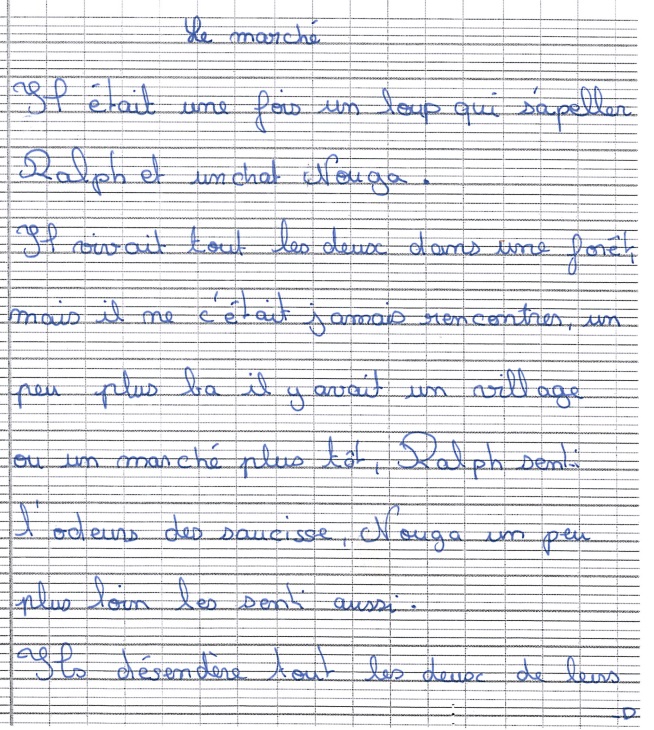 Le marché
Il était une fois un loup qui s'apeller
Ralph et un chat Nouga.
Il vivait tout les deux dans une forêt,
mais il ne c'était jamais rencontres, un
peu plus ba il y avait un village
ou un marché plus tôt, Ralph senti
l'odeurs des saucisse, Nouga un peu
plus loin les senti aussi.
Ils désendère tout les deux de leurs